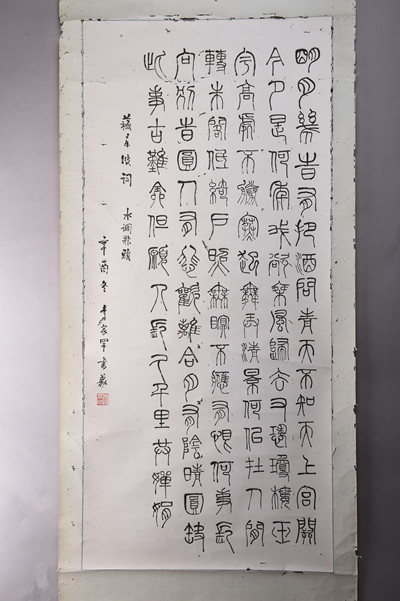 明月幾時有把酒問青天不知天上宮闕
今夕是何年我欲乘風歸去又恐瓊樓玉
宇高處不勝寒起舞弄清景何似在人間
轉朱閣低綺戶照無眠不應有恨何事長
向別時圓人有悲歡離合月有陰晴圓缺
此事古難全但願人長久千里共嬋娟
蘇東坡詞 水調歌頭
辛酉冬